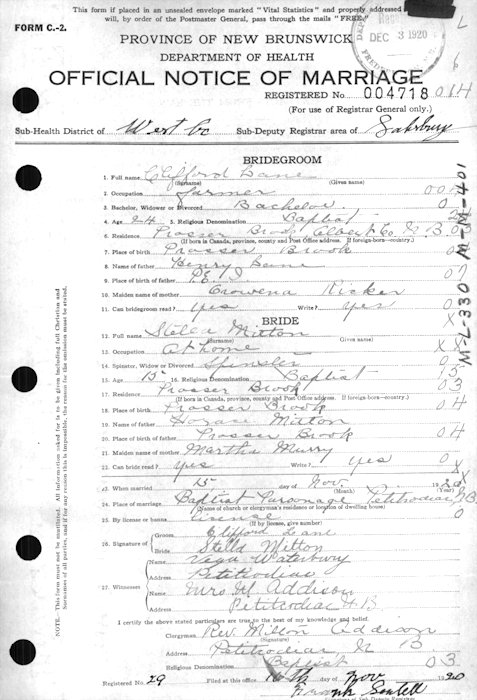 This form if deposited in an unsealed envelope marked "Vital Statistics" and properly addressed
will, by order of the Postmaster General, pass through the mails "FREE"
FORM C.-2.
DEC 3 1920
PROVINCE OF NEW BRUNSWICK
DEPARTMENT OF HEALTH
OFFICIAL NOTICE OF MARRIAGE
REGISTERED No. 004718 014
(For use of Registrar General only.)
Sub-Health District of West Co Sub-Deputy Registrar area of Salisbury
BRIDEGROOM
1. Full name Clifford Lane
(Surname) (Given names)
2. Occupation Farmer
3. Bachelor, Widower or Divorced Bachelor 0
4. Age 24 5. Religious Denomination Baptist
6. Residence Prosser Brook Albert Co N. B.
(If born in Canada, province, county and Post Office address. If foreign-born—country.)
7. Place of birth Prosser Brook
8. Name of father Henry Lane
9. Place of birth of father P.E.I 07
10. Maiden name of mother Rowena Ricker
11. Can bridegroom read? yes Write? yes
BRIDE
12. Full name Stella Milton
(Surname) (Given names)
13. Occupation At home
14. Spinster, Widow or Divorced Spinster
15. Age 15 16. Religious Denomination Baptist
17. Residence Prosser Brook 03
(If born in Canada, province, county and Post Office address. If foreign-born—country.)
18. Place of birth Prosser Brook 04
19. Name of father Horace Milton
20. Place of birth of father Prosser Brook 04
21. Maiden name of mother Martha Murry
22. Can bride read? yes Write? yes 0
23. When married 15 day of Nov. 1920
(Month) (Year)
24. Place of marriage Baptist Parsonage Petitcodiac, NB
(Name of church or clergyman's residence or location of dwelling house)
25. By license or banns License 0
(If by license, give number)
26. Signature of Groom Clifford Lane
Bride Stella Milton
27. Witnesses Vega Waterbury
Address Petitcodiac
Name Mrs M Addison
Address Petitcodiac N B.
I certify the above stated particulars are true to the best of my knowledge and belief.
Clergyman Rev. Milton Addison
(Signature)
Address Petitcodiac N. B.
Religious Denomination Baptist 03
Registered No. 29 Filed at this office 16th day of Nov 1920
Frank Sentell
M-L-330 M-M-401
NOTE.—This form must not be mutilated. All information asked for is to be given including full Christian and
surnames of all parties, and if for any reason this is impossible, the reason for the omission must be stated.